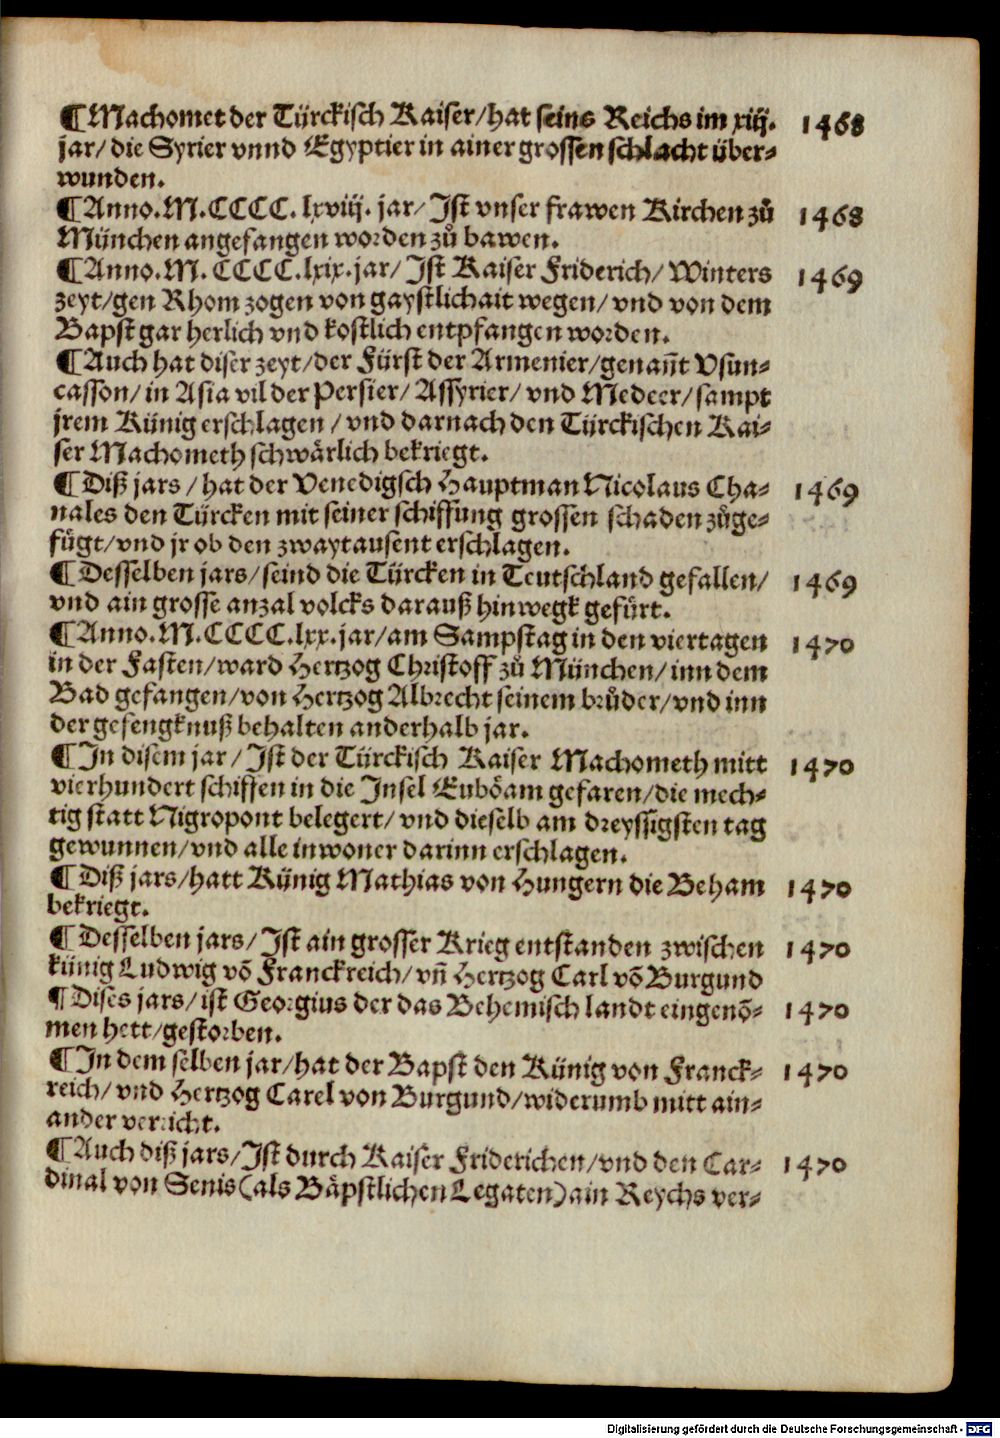 ¶Machomet der Türckisch Kaiser/hat seins Reichs im xiij. 1468
jar/ die Syrier vnnd Egyptier in ainer grossen schlacht über⸗
wunden.
¶Anno.M.CCCC.lxviij. jar/ Ist vnser frawen Kirchen zů 1468
München angefangen worden zů bawen.
¶Anno.M.CCCC.lxix.jar/ Ist Kaiser Friderich/ Winters 1469
zeyt/gen Rhom zogen von gaystlichait wegen/ vnd von dem
Bapst gar herlich vnd kostlich entpfangen worden.
¶Auch hat diser zeyt/der Fürst der Armenier/genañt Vsun⸗
casson/ in Asia vil der Persier/ Assyrier/ vnd Medeer/ sampt
jrem Künig erschlagen / vnd darnach den Türckischen Kai⸗
ser Machometh schwärlich bekriegt.
¶Diß jars / hat der Venedigsch Hauptman Nicolaus Cha⸗ 1469
nales den Türcken mit seiner schiffung grossen schaden zůge⸗
fügt/vnd jr ob den zwaytausent erschlagen.
¶Desselben jars/seind die Türcken in Teutschland gefallen/ 1469
vnd ain grosse anzal volcks darauß hinwegk gefürt.
¶Anno.M.CCCC.lxx.jar/am Sampstag in den viertagen 1470
in der Fasten/ward Hertzog Christoff zů München/ inn dem
Bad gefangen/von Hertzog Albrecht seinem brůder/vnd inn
der gefengknuß behalten anderhalb jar.
¶In disem jar / Ist der Türckisch Kaiser Machometh mitt 1470
vierhundert schiffen in die Insel Euböam gefaren/die mech⸗
tig statt Nigropont belegert/ vnd dieselb am dreyssigsten tag
gewunnen/vnd alle inwoner darinn erschlagen.
¶Diß jars/hatt Künig Mathias von Hungern die Beham 1470
bekriegt.
¶Desselben jars/ Ist ain grosser Krieg entstanden zwischen 1470
künig Ludwig võ Franckreich/ vñ Hertzog Carl võ Burgund
¶Dises jars/ ist Georgius der das Behemisch landt eingenõ⸗ 1470
men hett/gestorben.
¶In dem selben jar/hat der Bapst den Künig von Franck⸗ 1470
reich/ vnd Hertzog Carel von Burgund/widerumb mitt ain⸗
ander vericht.
¶Auch diß jars/Ist durch Kaiser Friderichen/vnd den Car⸗ 1470
dinal von Senis(als Bäpstlichen Legaten)ain Reychs ver⸗
Digitalisierung gefördert durch die Deutsche Forschungsgemeinschaft - DFG